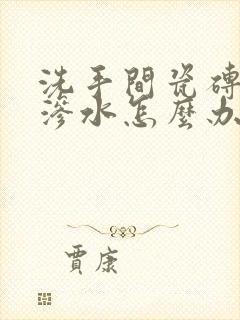 洗手間瓷磚
滲水怎麼办
賈康